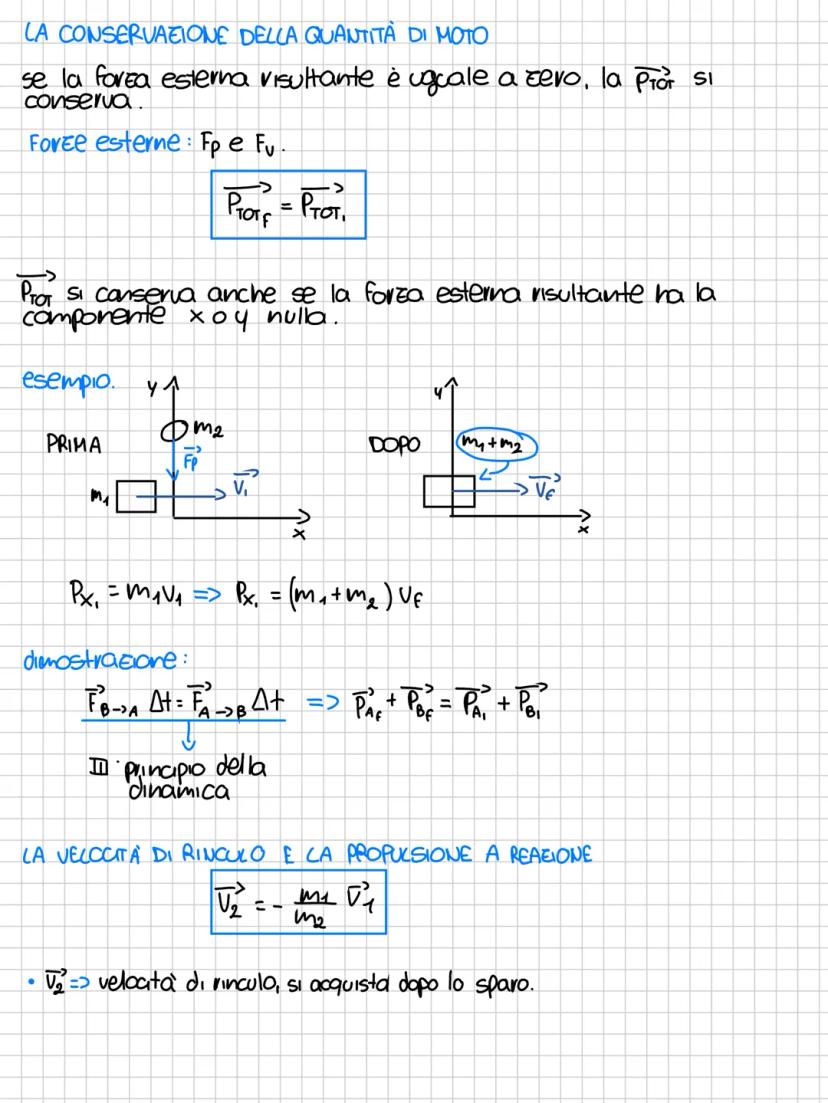 LA CONSERVAZIONE DELLA QUANTITÀ DI MOTO
se la forza esterna risultante è uguale a zero, la P⃗TOT si
conserva.
Forze esterne: Fp e Fv.
P⃗TOTf = P⃗TOTi
P⃗TOT si conserva anche se la forza esterna risultante ha la
componente x o y nulla.
esempio.
PRIMA
y
m2
F⃗p
m1
V⃗i
x
DOPO
y
m1+m2
V⃗f
x
Pxi = m1v1 => Pxi = (m1+m2) vf
dimostrazione:
F⃗B->A Δt = F⃗A->B Δt => P⃗Af + P⃗Bf = P⃗Ai + P⃗Bi
III principio della
dinamica
LA VELOCITÀ DI RINCULO E LA PROPULSIONE A REAZIONE
V⃗2 = - m1/m2 V⃗1
• V⃗2 => velocità di rinculo, si acquista dopo lo sparo.